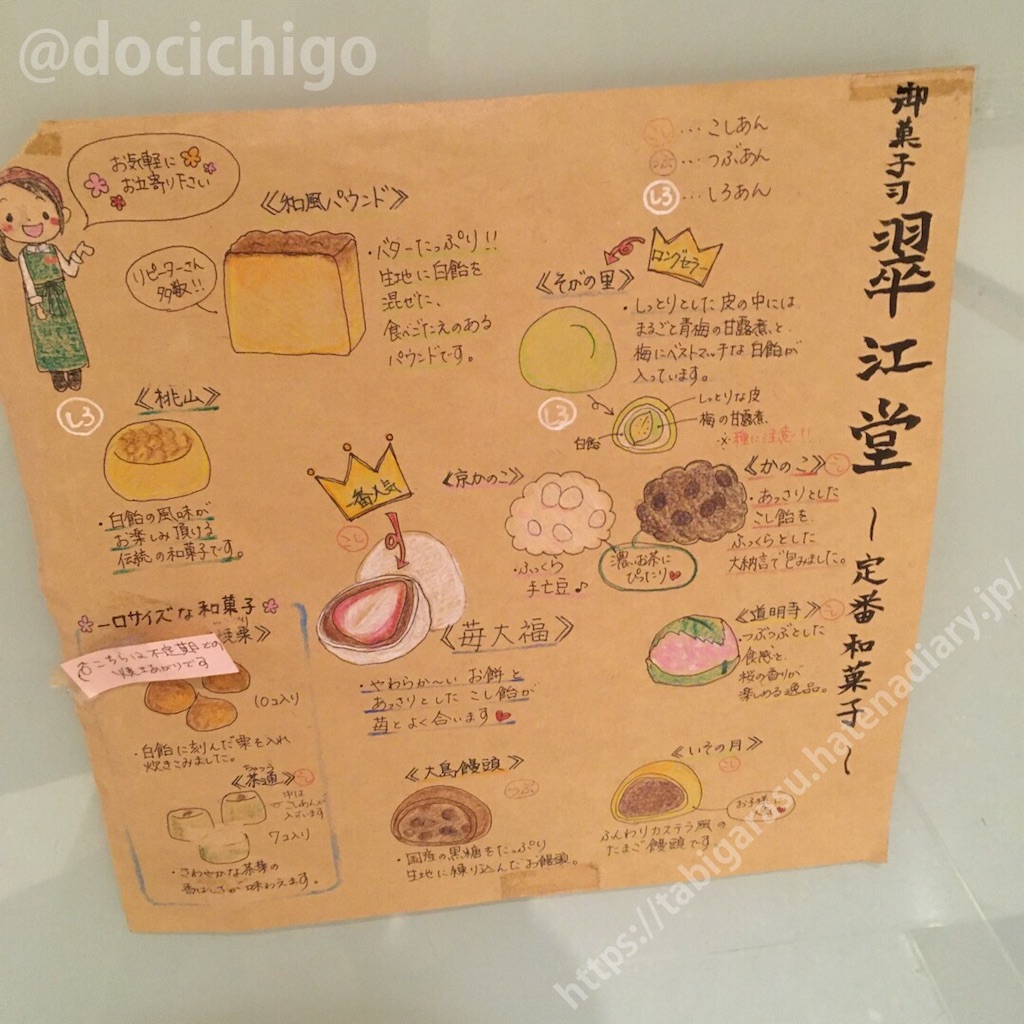 @docichigo
御菓子司 翠江堂 〜定番和菓子〜
こし…こしあん
つぶ…つぶあん
しろ…しろあん
お気軽に
お立寄り下さい
《和風パウンド》
リピーターさん
多数!!
・バターたっぷり!!
生地に白飴を
混ぜた、
食べごたえのある
パウンドです。
ロングセラー
《そがの里》
・しっとりとした皮の中には
まるごと青梅の甘露煮と、
梅にベストマッチな白飴が
入っています。
しろ
しっとりな皮
梅の甘露煮
※種に注意!!
白飴
しろ
《桃山》
・白飴の風味が
お楽しみ頂ける
伝統の和菓子です。
一番人気
こし
《苺大福》
・やわらか〜いお餅と
あっさりとしたこし飴が
苺とよく合います
《京かのこ》
・ふっくら
手亡豆♪
濃いお茶に
ぴったり
《かのこ》
こし
・あっさりとした
こし飴を
ふっくらとした
大納言で包みました。
《道明寺》
こし
・つぶつぶとした
食感と、
桜の香りが
楽しめる逸品。
一口サイズな和菓子
焼栗》
こちらは不定期での
焼き上がりです
10コ入り
・白飴に刻んだ栗を入れ
炊きこみました。
ちゃつう
《茶通》
こし
中は
こしあんが
入ってます
7コ入り
・さわやかな茶葉の
香ばしさが味わえます。
《大島饅頭》
つぶ
・国産の黒糖をたっぷり
生地に練り込んだお饅頭。
《いその月》
こし
お子様に
ふんわりカステラ風の
たまご饅頭です。
https://tabigarasu.hatenadiary.jp/